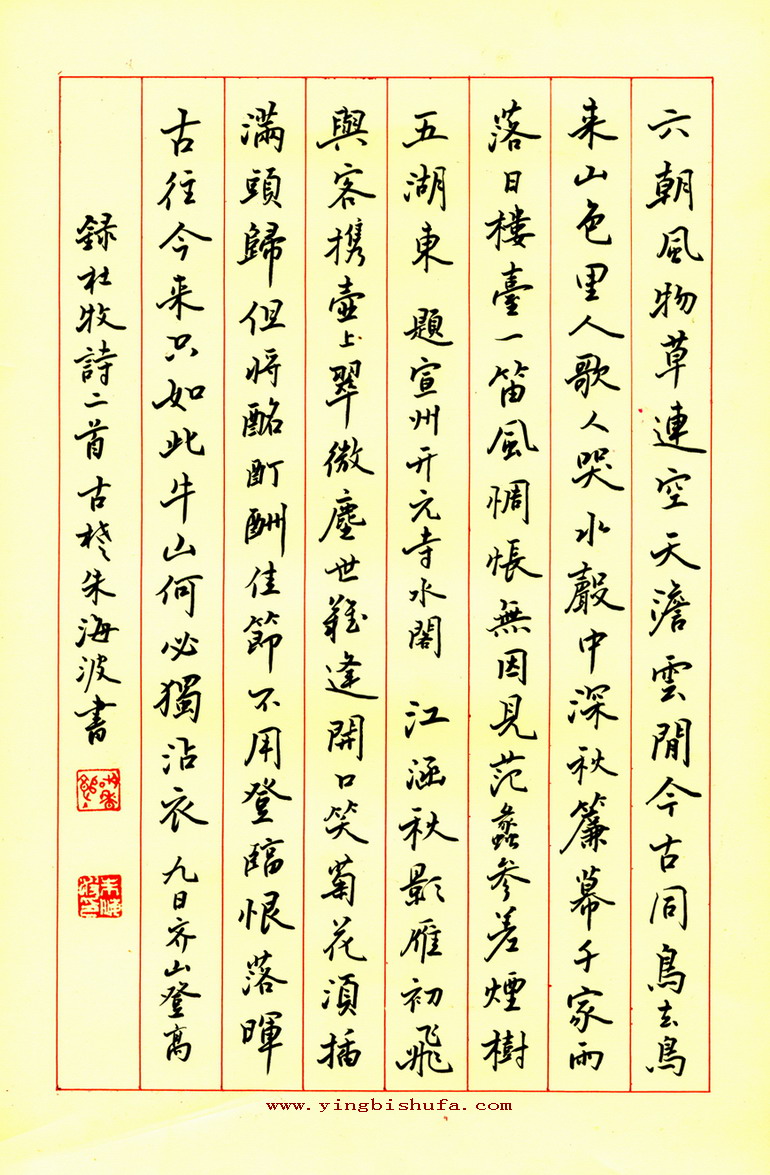 六朝風物草連空天澹雲閒今古同鳥去鳥
来山色里人歌人哭水聲中深秋簾幕千家雨
落日樓臺一笛風惆悵無因見范蠡參差煙樹
五湖東 題宣州开元寺水閣 江涵秋影雁初飛
與客携壺上翠微塵世難逢開口笑菊花須插
滿頭歸但將酩酊酬佳節不用登臨恨落暉
古往今来只如此牛山何必獨沾衣 九日齐山登高
録杜牧詩二首古楚朱海波書
www.yingbishufa.com